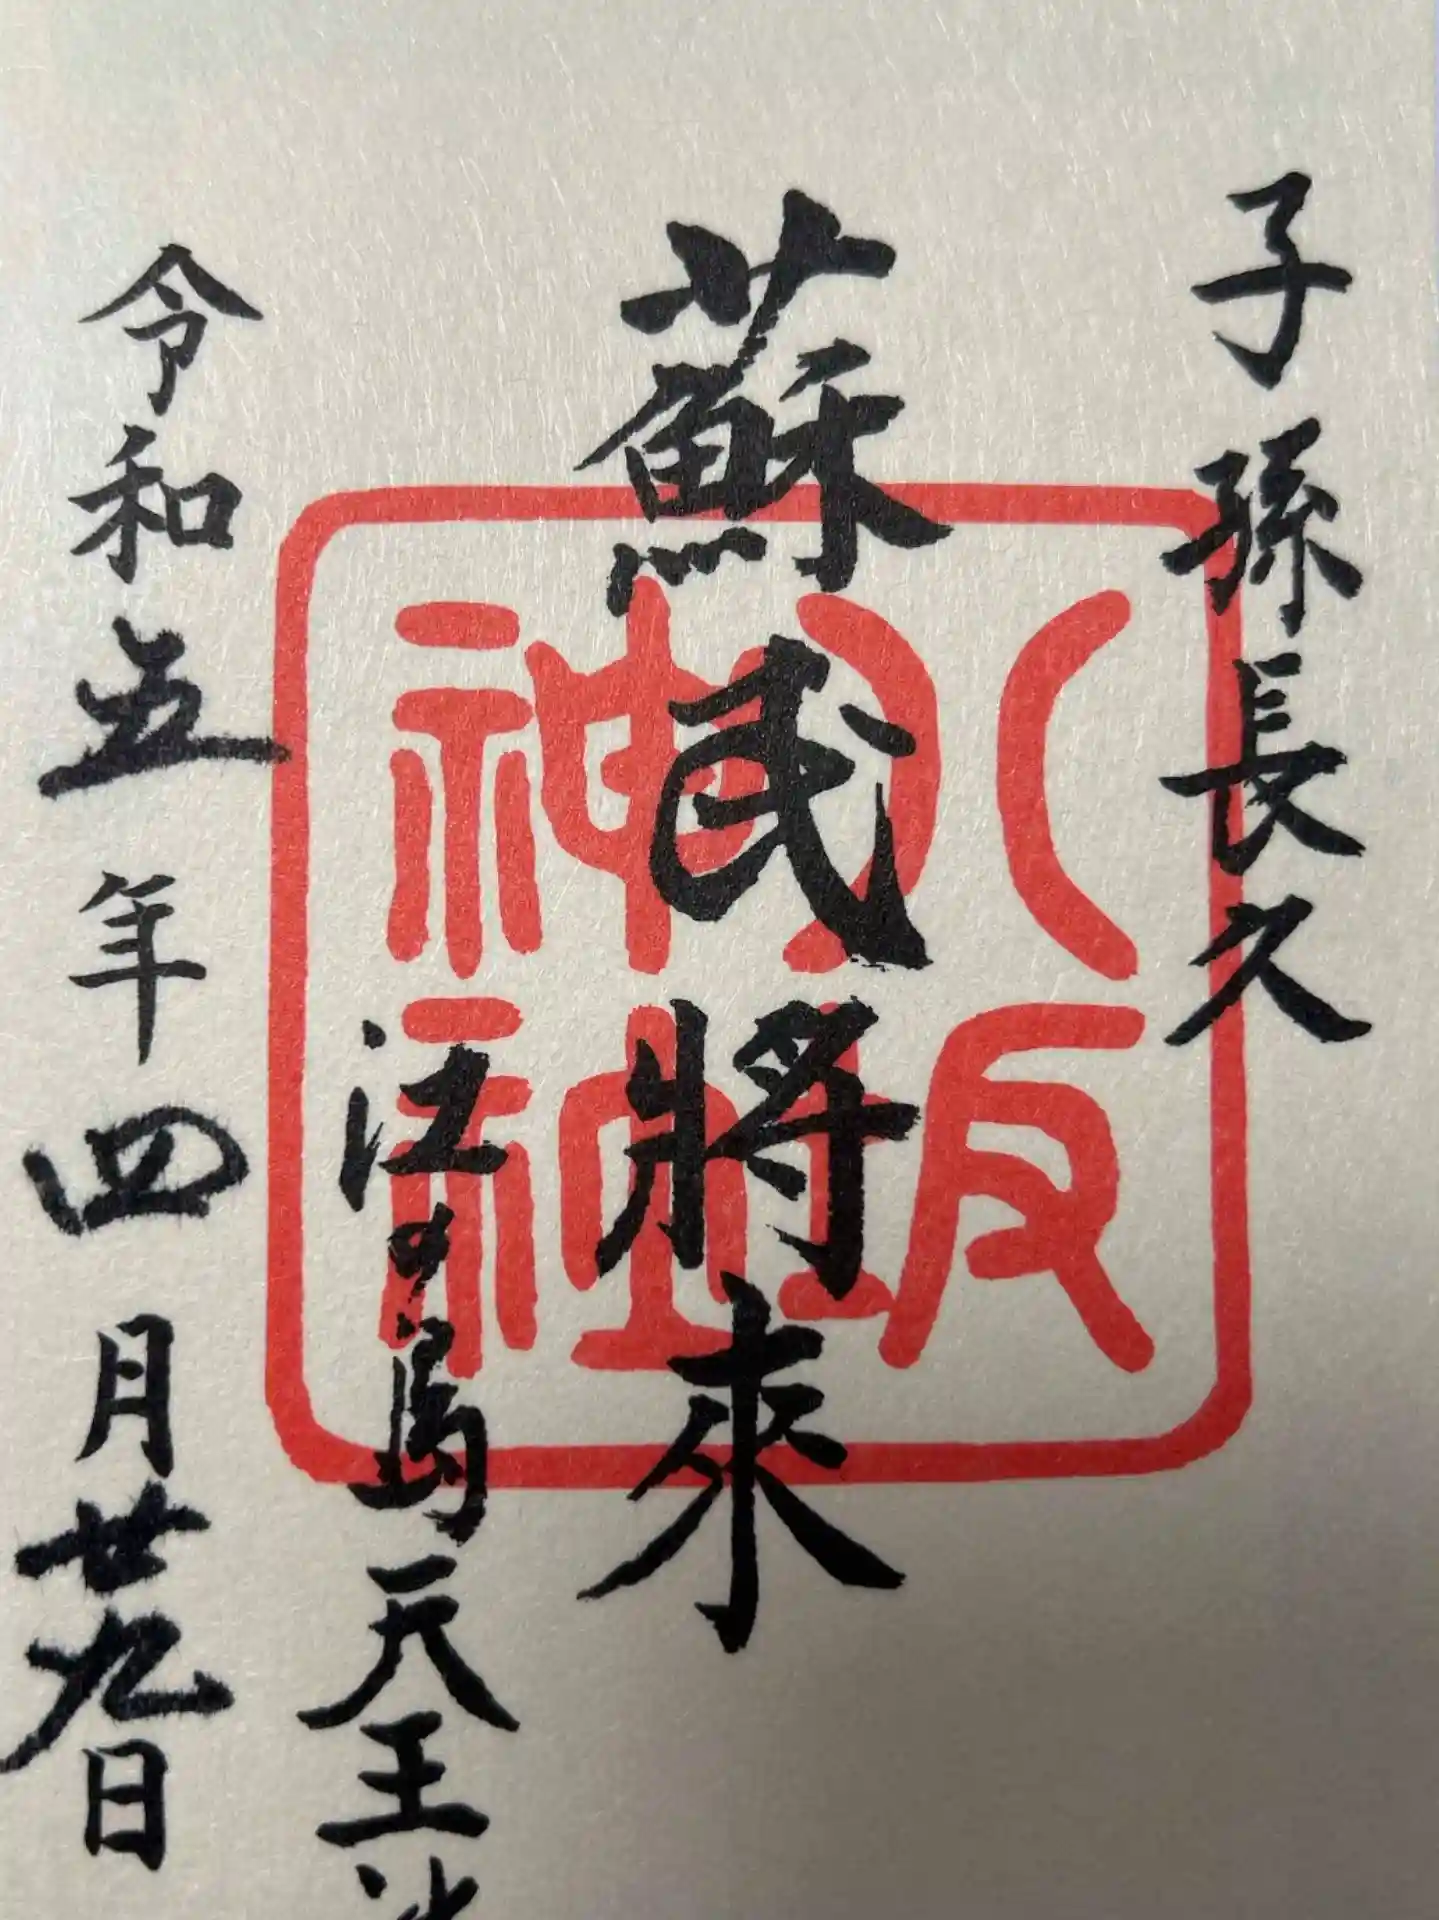 子孫長久
蘇民將來
江の島天王
令和五年四月廿九日
八坂神社